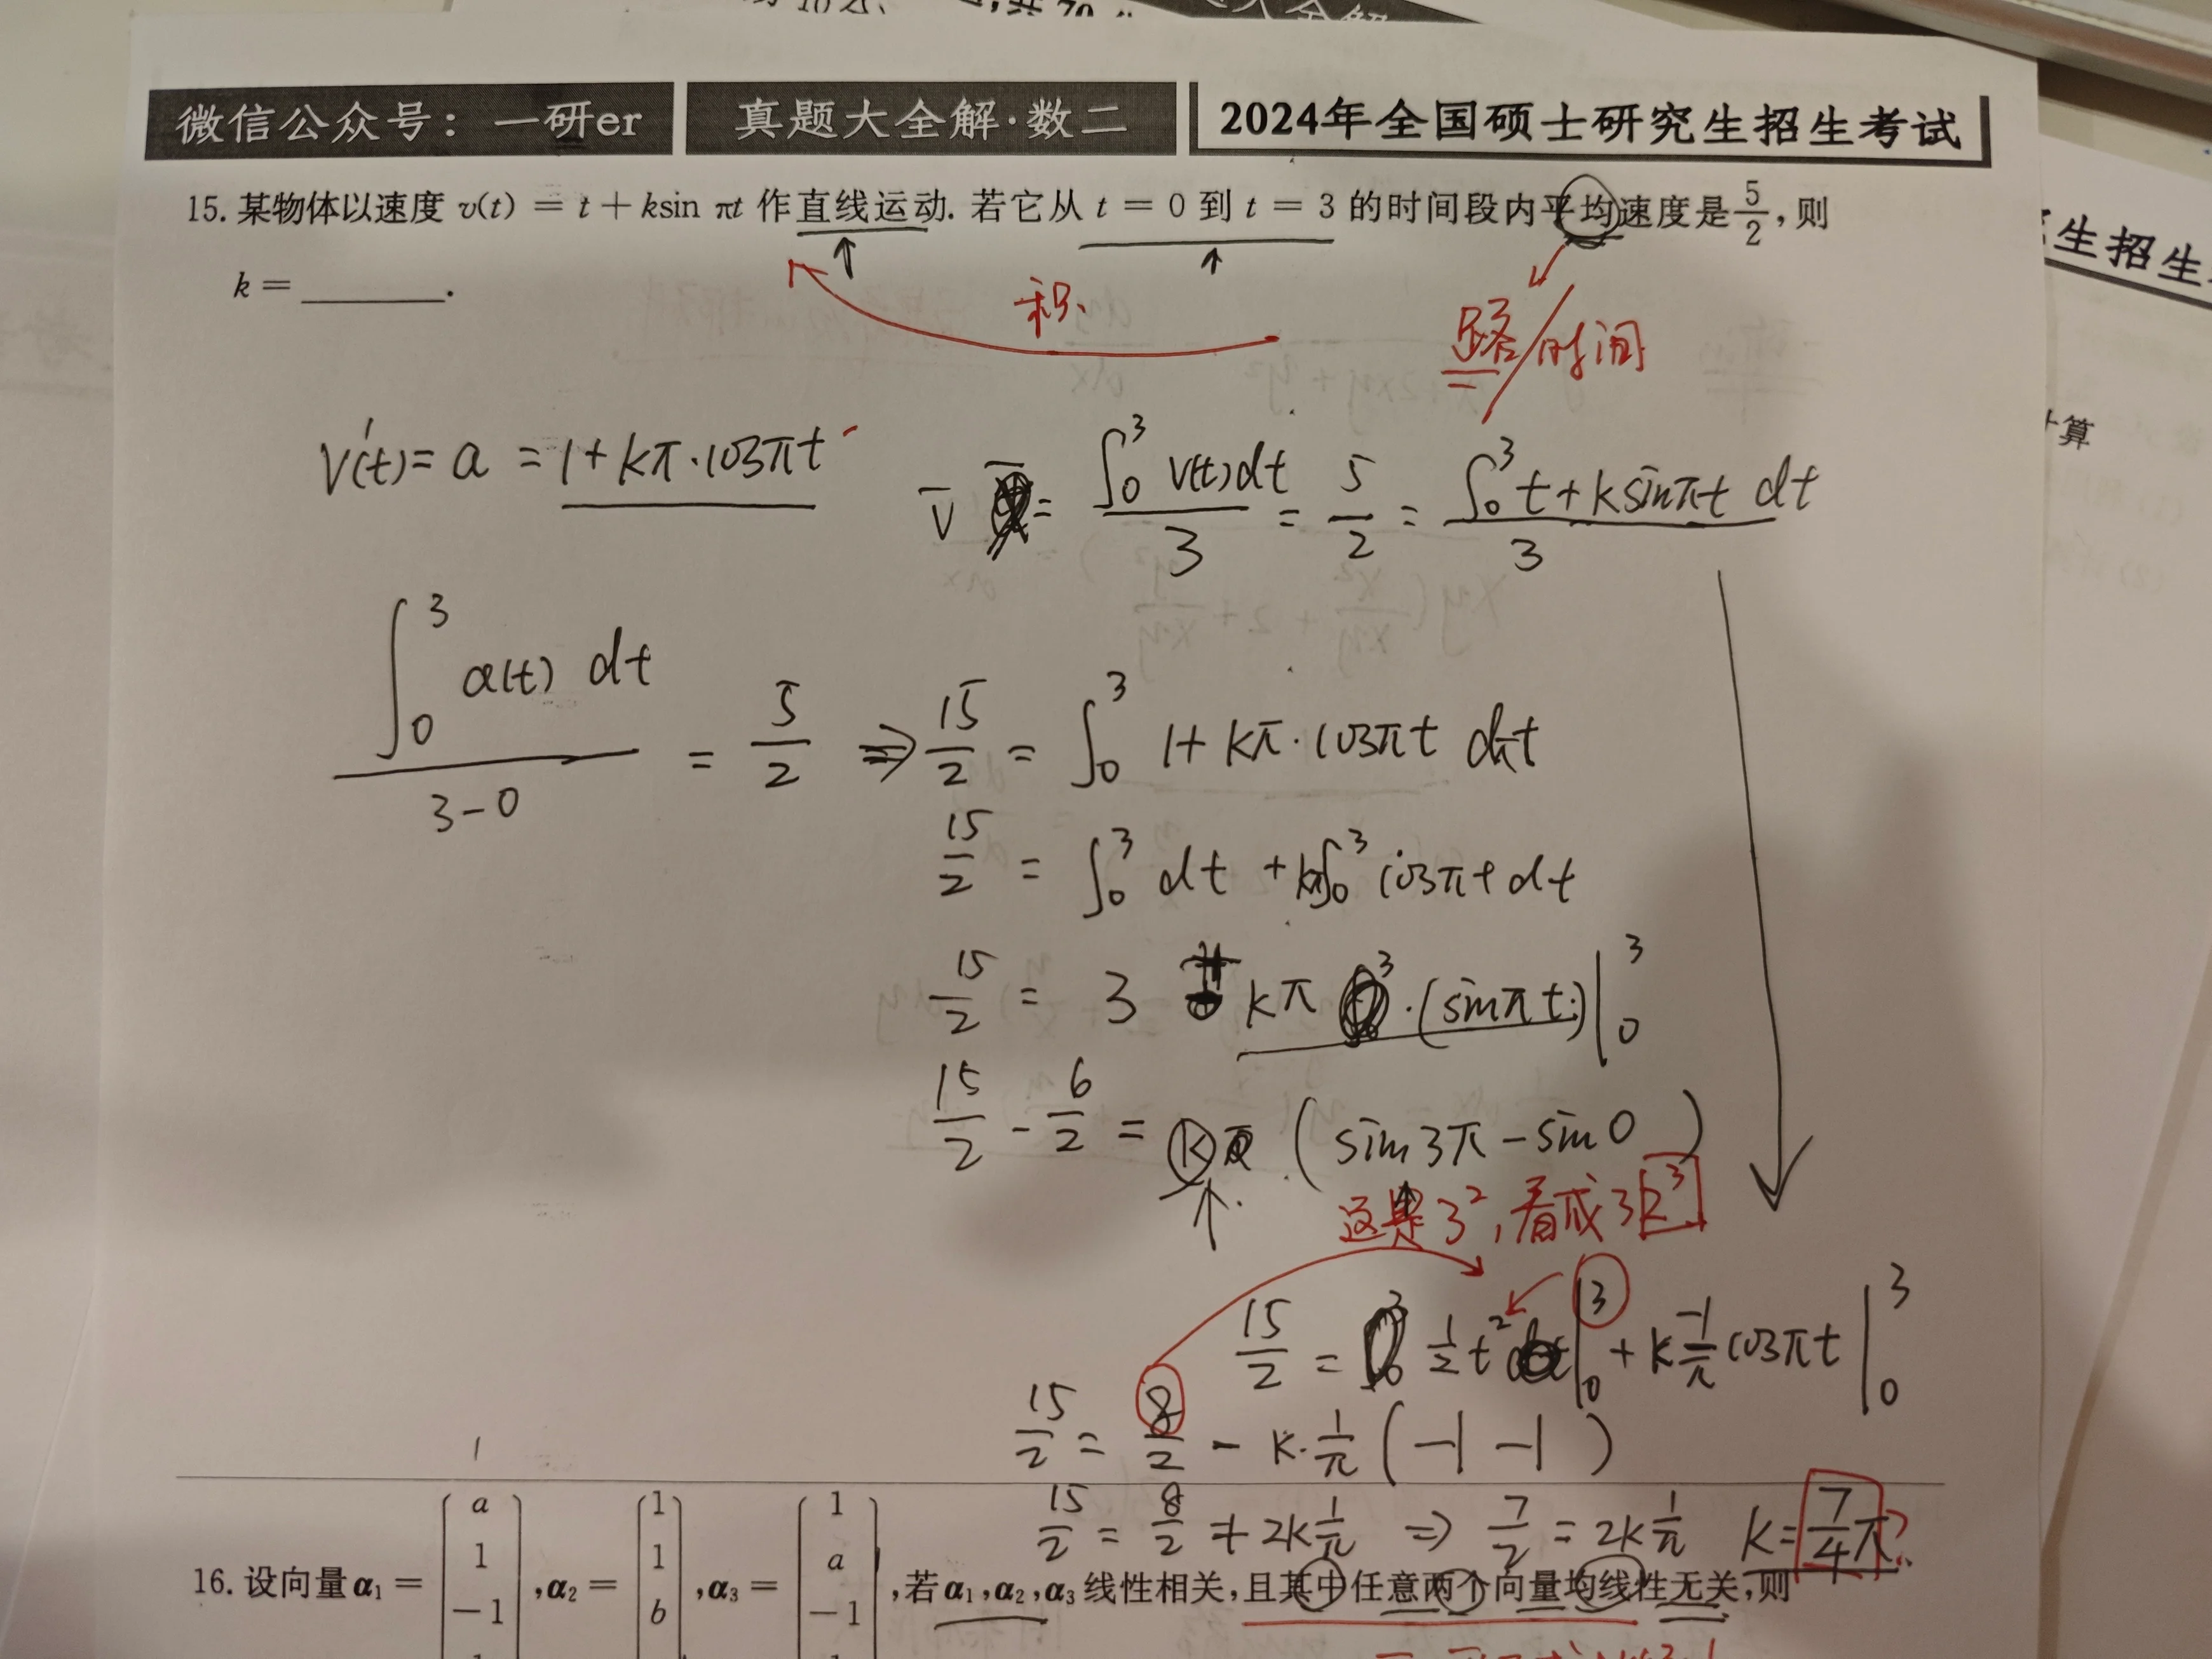 微信公众号：一研er 真题大全解·数二 2024年全国硕士研究生招生考试
15. 某物体以速度 v(t) = t + ksin πt 作直线运动. 若它从 t = 0 到 t = 3 的时间段内平均速度是 5/2, 则
k = ________.
积.
路/时间
V'(t) = a = 1 + kπ·cosπt
V̄ = ∫₀³ v(t)dt / 3 = 5/2 = ∫₀³ t + k sinπt dt / 3
∫₀³ a(t) dt / 3-0 = 5/2 ⇒ 15/2 = ∫₀³ 1 + kπ·cosπt dt
15/2 = ∫₀³ dt + kπ∫₀³ cosπt dt
15/2 = 3 + kπ·(sinπt)|₀³
15/2 - 6/2 = kπ (sin3π - sin0)
这是3², 看成了2³
15/2 = 1/2 t² |₀³ + k -1/π cosπt |₀³
15/2 = 8/2 - k·1/π (-1 -1)
15/2 = 8/2 + 2k 1/π ⇒ 7/2 = 2k 1/π k = 7/4 π?
16. 设向量 α₁ = (a 1 -1 , α₂ = (1 1 b , α₃ = (1 a -1 , 若 α₁, α₂, α₃ 线性相关, 且其中任意两个向量均线性无关, 则
生招生
计算